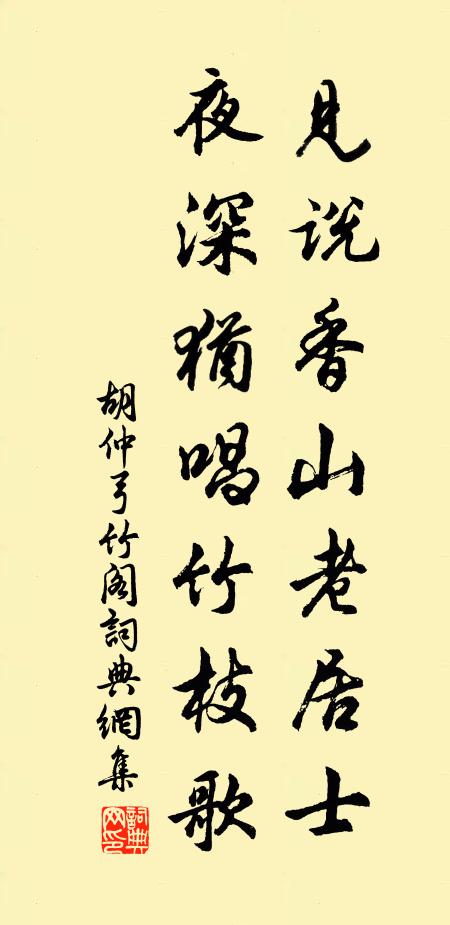 見說香山老居士
夜深猶唱竹枝歌
胡仲弓竹閣詞典網集
詞典網印